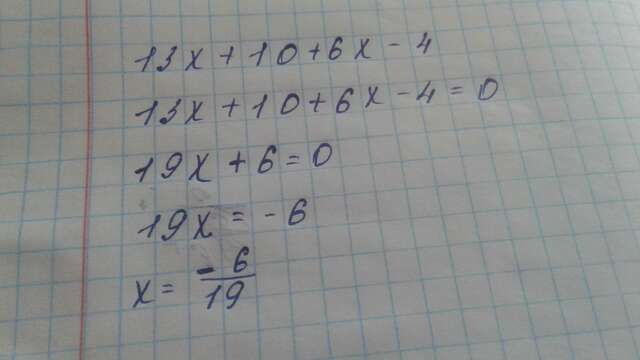 13x + 10 + 6x - 4
13x + 10 + 6x - 4 = 0
19x + 6 = 0
19x = - 6
x = - 6/19